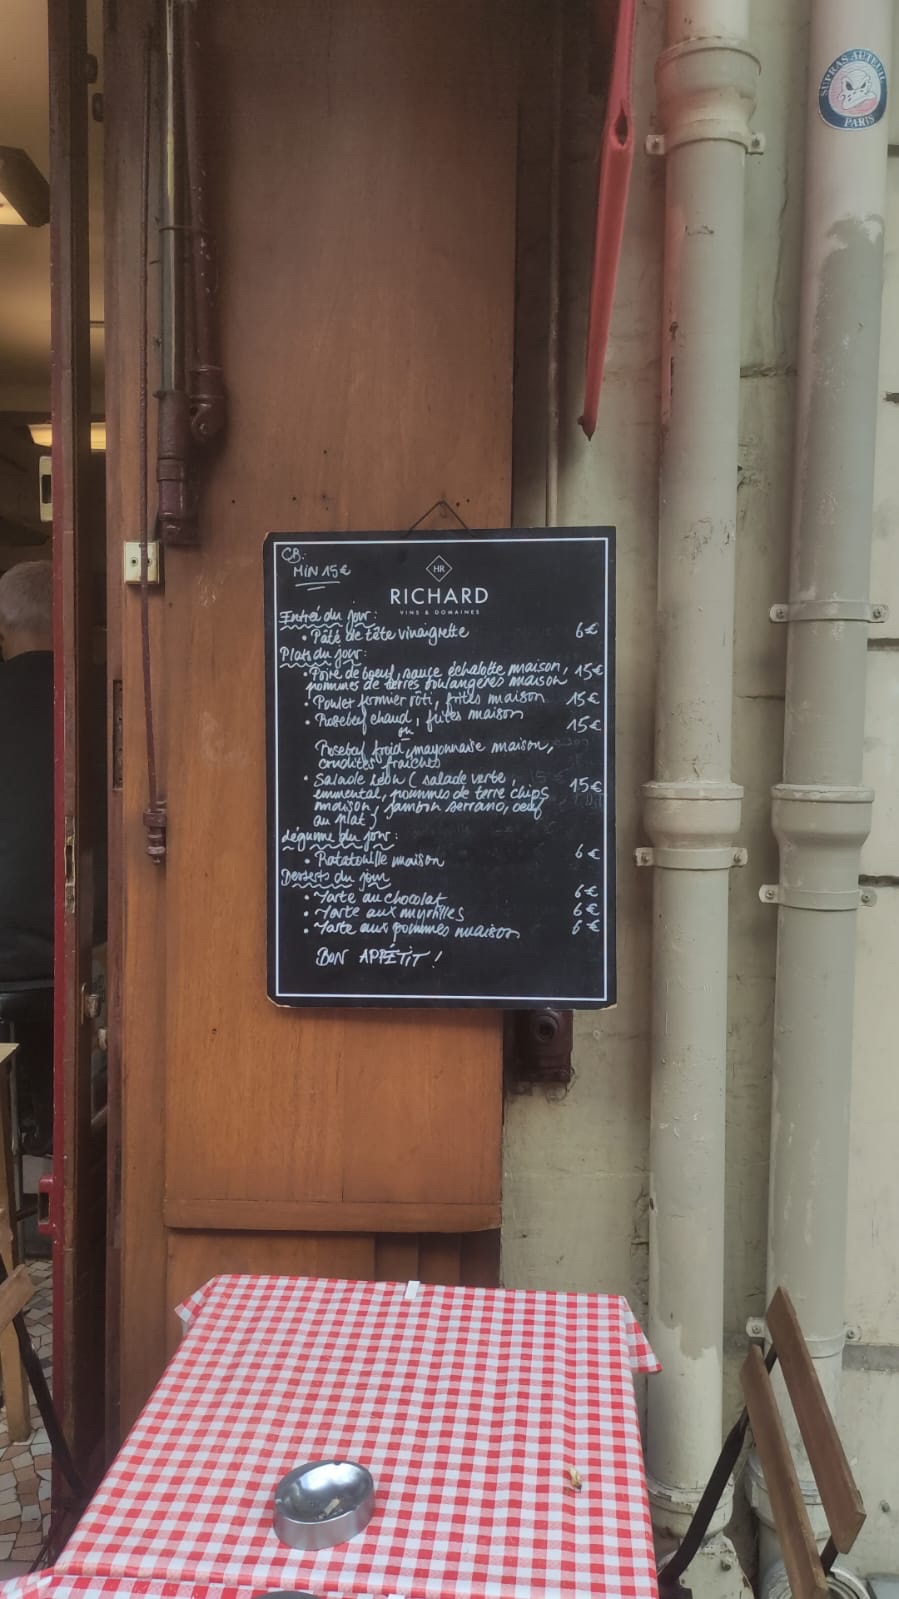 SUPRAS AUTEUIL
PARIS
CB:
MIN 15€
HR
RICHARD
VINS & DOMAINES
Entrée du jour:
• Pâté de tête vinaigrette 6€
Plats du jour:
• Poire de boeuf, sauce échalotte maison, 15€
pommes de terres boulangères maison
• Poulet fermier rôti, frites maison 15€
• Rosebeef chaud, frites maison 15€
ou
Rosebeef froid, mayonnaise maison,
crudités fraîches
• Salade (salade verte, 15€
emmental, pommes de terre chips
maison, jambon serrano, oeuf
au plat)
Légume du jour:
• Ratatouille maison 6€
Desserts du jour
• Tarte au chocolat 6€
• Tarte aux myrtilles 6€
• Tarte aux pommes maison 6€
BON APPÉTIT !